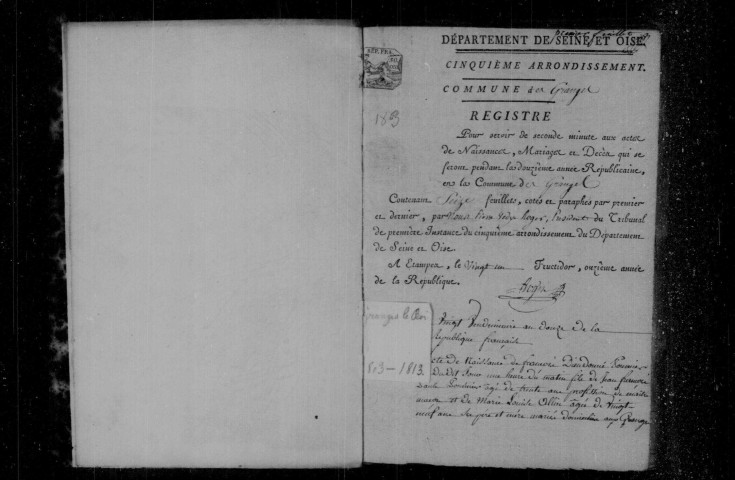 premier feuillet
DÉPARTEMENT DE SEINE ET OISE.
CINQUIÈME ARRONDISSEMENT.
COMMUNE des Granges
REP. FRA.
1803
REGISTRE
Pour servir de seconde minute aux actes
de Naissances, Mariages et Décès qui se
feront pendant la douzième année Républicaine,
en la Commune des Granges
Contenant Seize feuillets, cotés et paraphés par premier
et dernier, par Nous Président du Tribunal
de première Instance du cinquième arrondissement du Département
de Seine et Oise.
A Etampes, le Vingt Fructidor, onzième année
de la République.
Granges le Roi
1803-1813.
Vingt Vendémiaire an douze de la
république française
acte de Naissance de françois Dieudonné
du dit Jour une heure du matin fils de jean françois
agé de trente ans profession de
et de Marie Louise agée de vingt
neuf ans Ses père et mère mariés domiciliés aux Granges